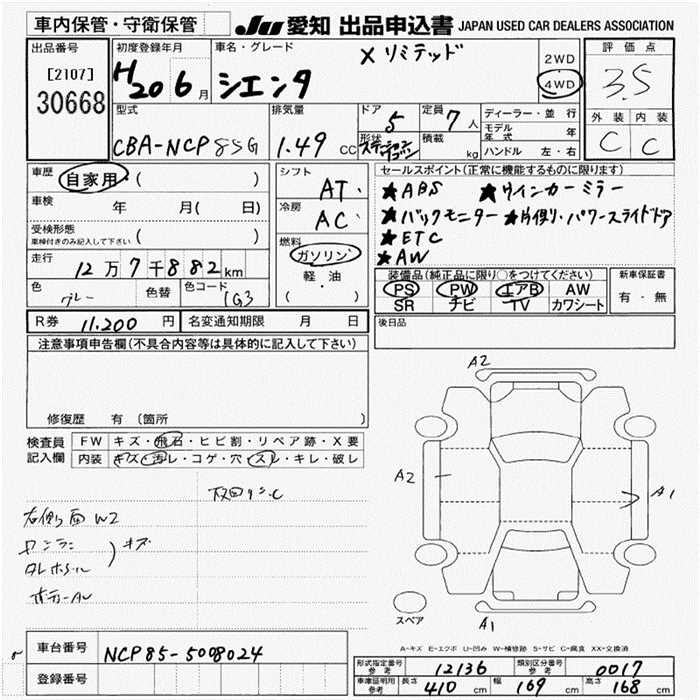 車内保管・守衛保管
JU 愛知 出品申込書 JAPAN USED CAR DEALERS ASSOCIATION
出品番号
[2107]
30668
初度登録年月
H20 6月
車名・グレード
X リミテッド
シエンタ
2WD
4WD
評価点
3.5
外装 内装
C C
型式
CBA-NCP85G
排気量
1.49 CC
ドア
5
定員
7人
形状
ステーションワゴン
積載
kg
ディーラー・並行
モデル年式 年
ハンドル 左・右
車歴
自家用 ( )
車検
年 月( 日)
受検形態
車検付きのみ記入して下さい ( )
走行
12万7千882km
色
グレー
色替
色コード
1G3
シフト
AT
冷房
AC
燃料
ガソリン
・
軽・油
( )
セールスポイント(正常に機能するものに限ります)
★ABS ★ウインカーミラー
★バックモニター ★片側り・パワースライドドア
★ETC
★AW
装備品(純正品に限り○をつけてください)
PS PW エアB AW
SR ナビ TV カワシート
新車保証書
有・無
R券 11,200円
名変通知期限 月 日
後日品
注意事項申告欄(不具合内容等は具体的に記入して下さい)
修復歴 有 (箇所 )
検査員記入欄
FW キズ・飛石・ヒビ割・リペア跡・X要
内装 キズ・ヨレ・コゲ・穴・スレ・キレ・破レ
右側面 W2
キズ
ボデーAU
A2
A2
A1
A1
スペア
A-キズ E-エクボ U-凹み W-補修跡 S-サビ C-腐食 XX-交換済
車台番号
NCP85-5008024
登録番号
形式指定番号参考 12136
類別区分番号参考 0017
車庫証明用参考 長さ 410cm 幅 169cm 高さ 168cm